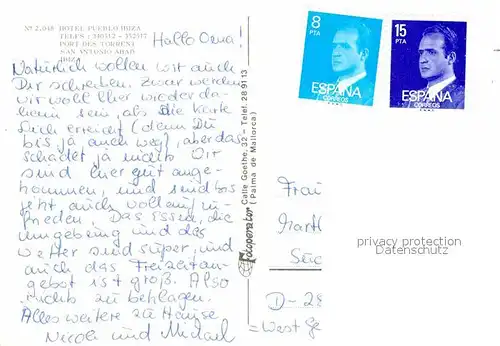 Nº 2.048 HOTEL PUEBLO IBIZA
TELFS: 340312 - 342517
PORT DES TORRENT
SAN ANTONIO ABAD
IBIZA
Hallo Oma!
Natürlich wollen wir auch
Dir schreiben. Zwar werden
wir wohl eher wieder da-
heim sein, als die Karte
Dich erreicht (denn Du
bis ja auch weg), aber das
schadet ja nichts. Wir
sind hier gut ange-
kommen, und sind bis
jetzt auch vollauf zu-
frieden. Das Essen, die
Umgebung und das
Wetter sind super, und
auch das Freizeitan-
gebot ist groß. Also
nichts zu beklagen.
Alles weitere zu Hause
Nicole und Michael
Fotoperator Calle Goethe, 32 - Telef. 28 91 13
(Palma de Mallorca)
8
PTA
ESPAÑA
CORREOS
15
PTA
ESPAÑA
CORREOS
Frau
privacy protection
Datenschutz
D-
=West Ge